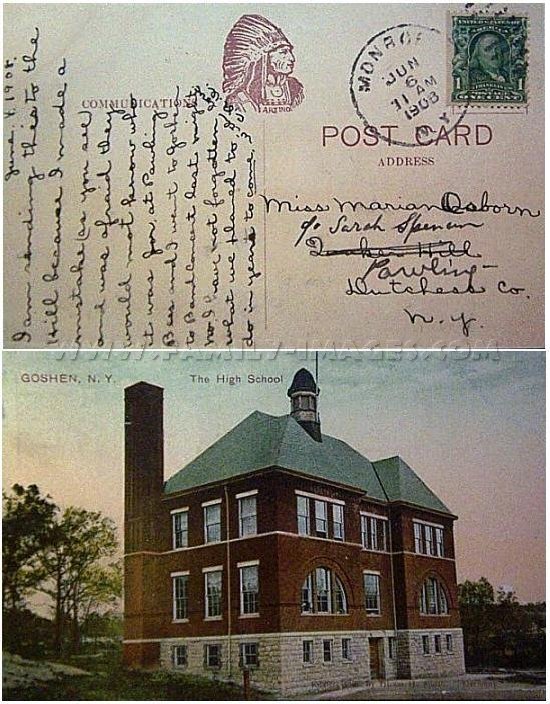 COMMUNICATIONS
POST CARD
ADDRESS
MONROE
JUN
6
11 AM
1908
N.Y.
June 4, 1908.
I am sending this to the
Hill because I made a
mistake (as you see
and was afraid they
would not know who
it was for, at Pawling
Bess and I went to
to Band concert last night
no I have not forgotten
what we planned to
do in years to come,
Miss Marian Osborn
c/o Sarah Spencer
Quaker Hill
Pawling
Dutchess Co.
N.Y.
WWW.FAMILY-IMAGES.COM
GOSHEN, N.Y. The High School